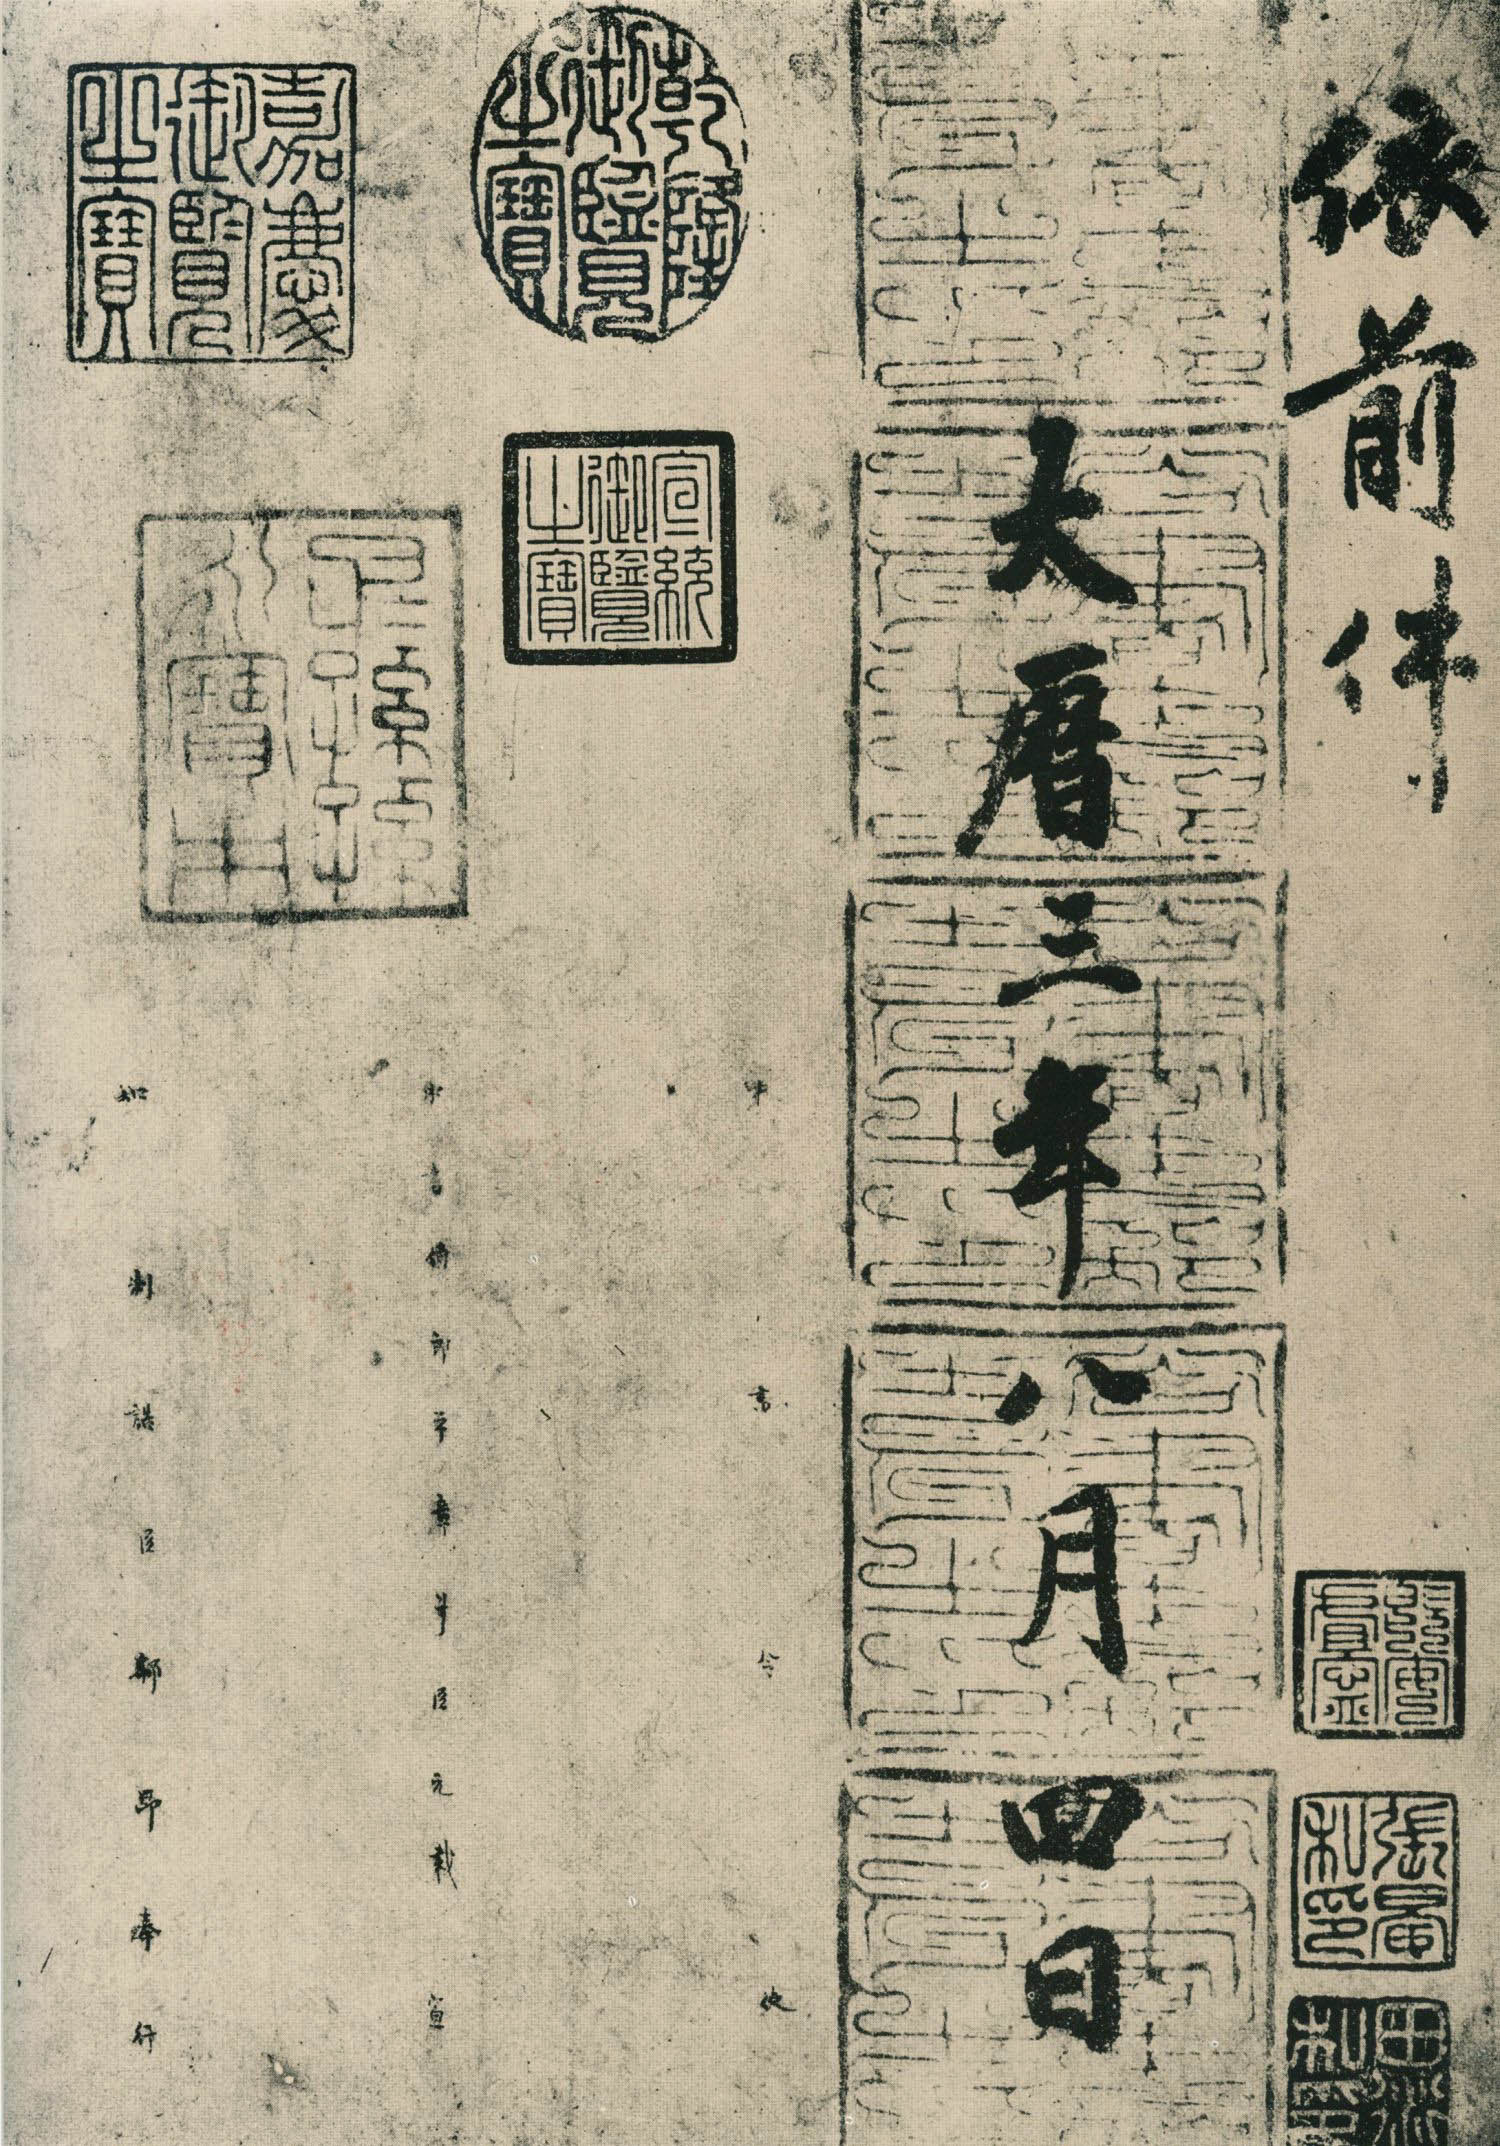 依前件
張晏私印
大曆三年八月四日
中書令 使
乾隆御覽之寶
宣統御覽之寶
中書侍郎平章事臣元載 宣
嘉慶御覽之寶
知制誥臣郗昂奉行